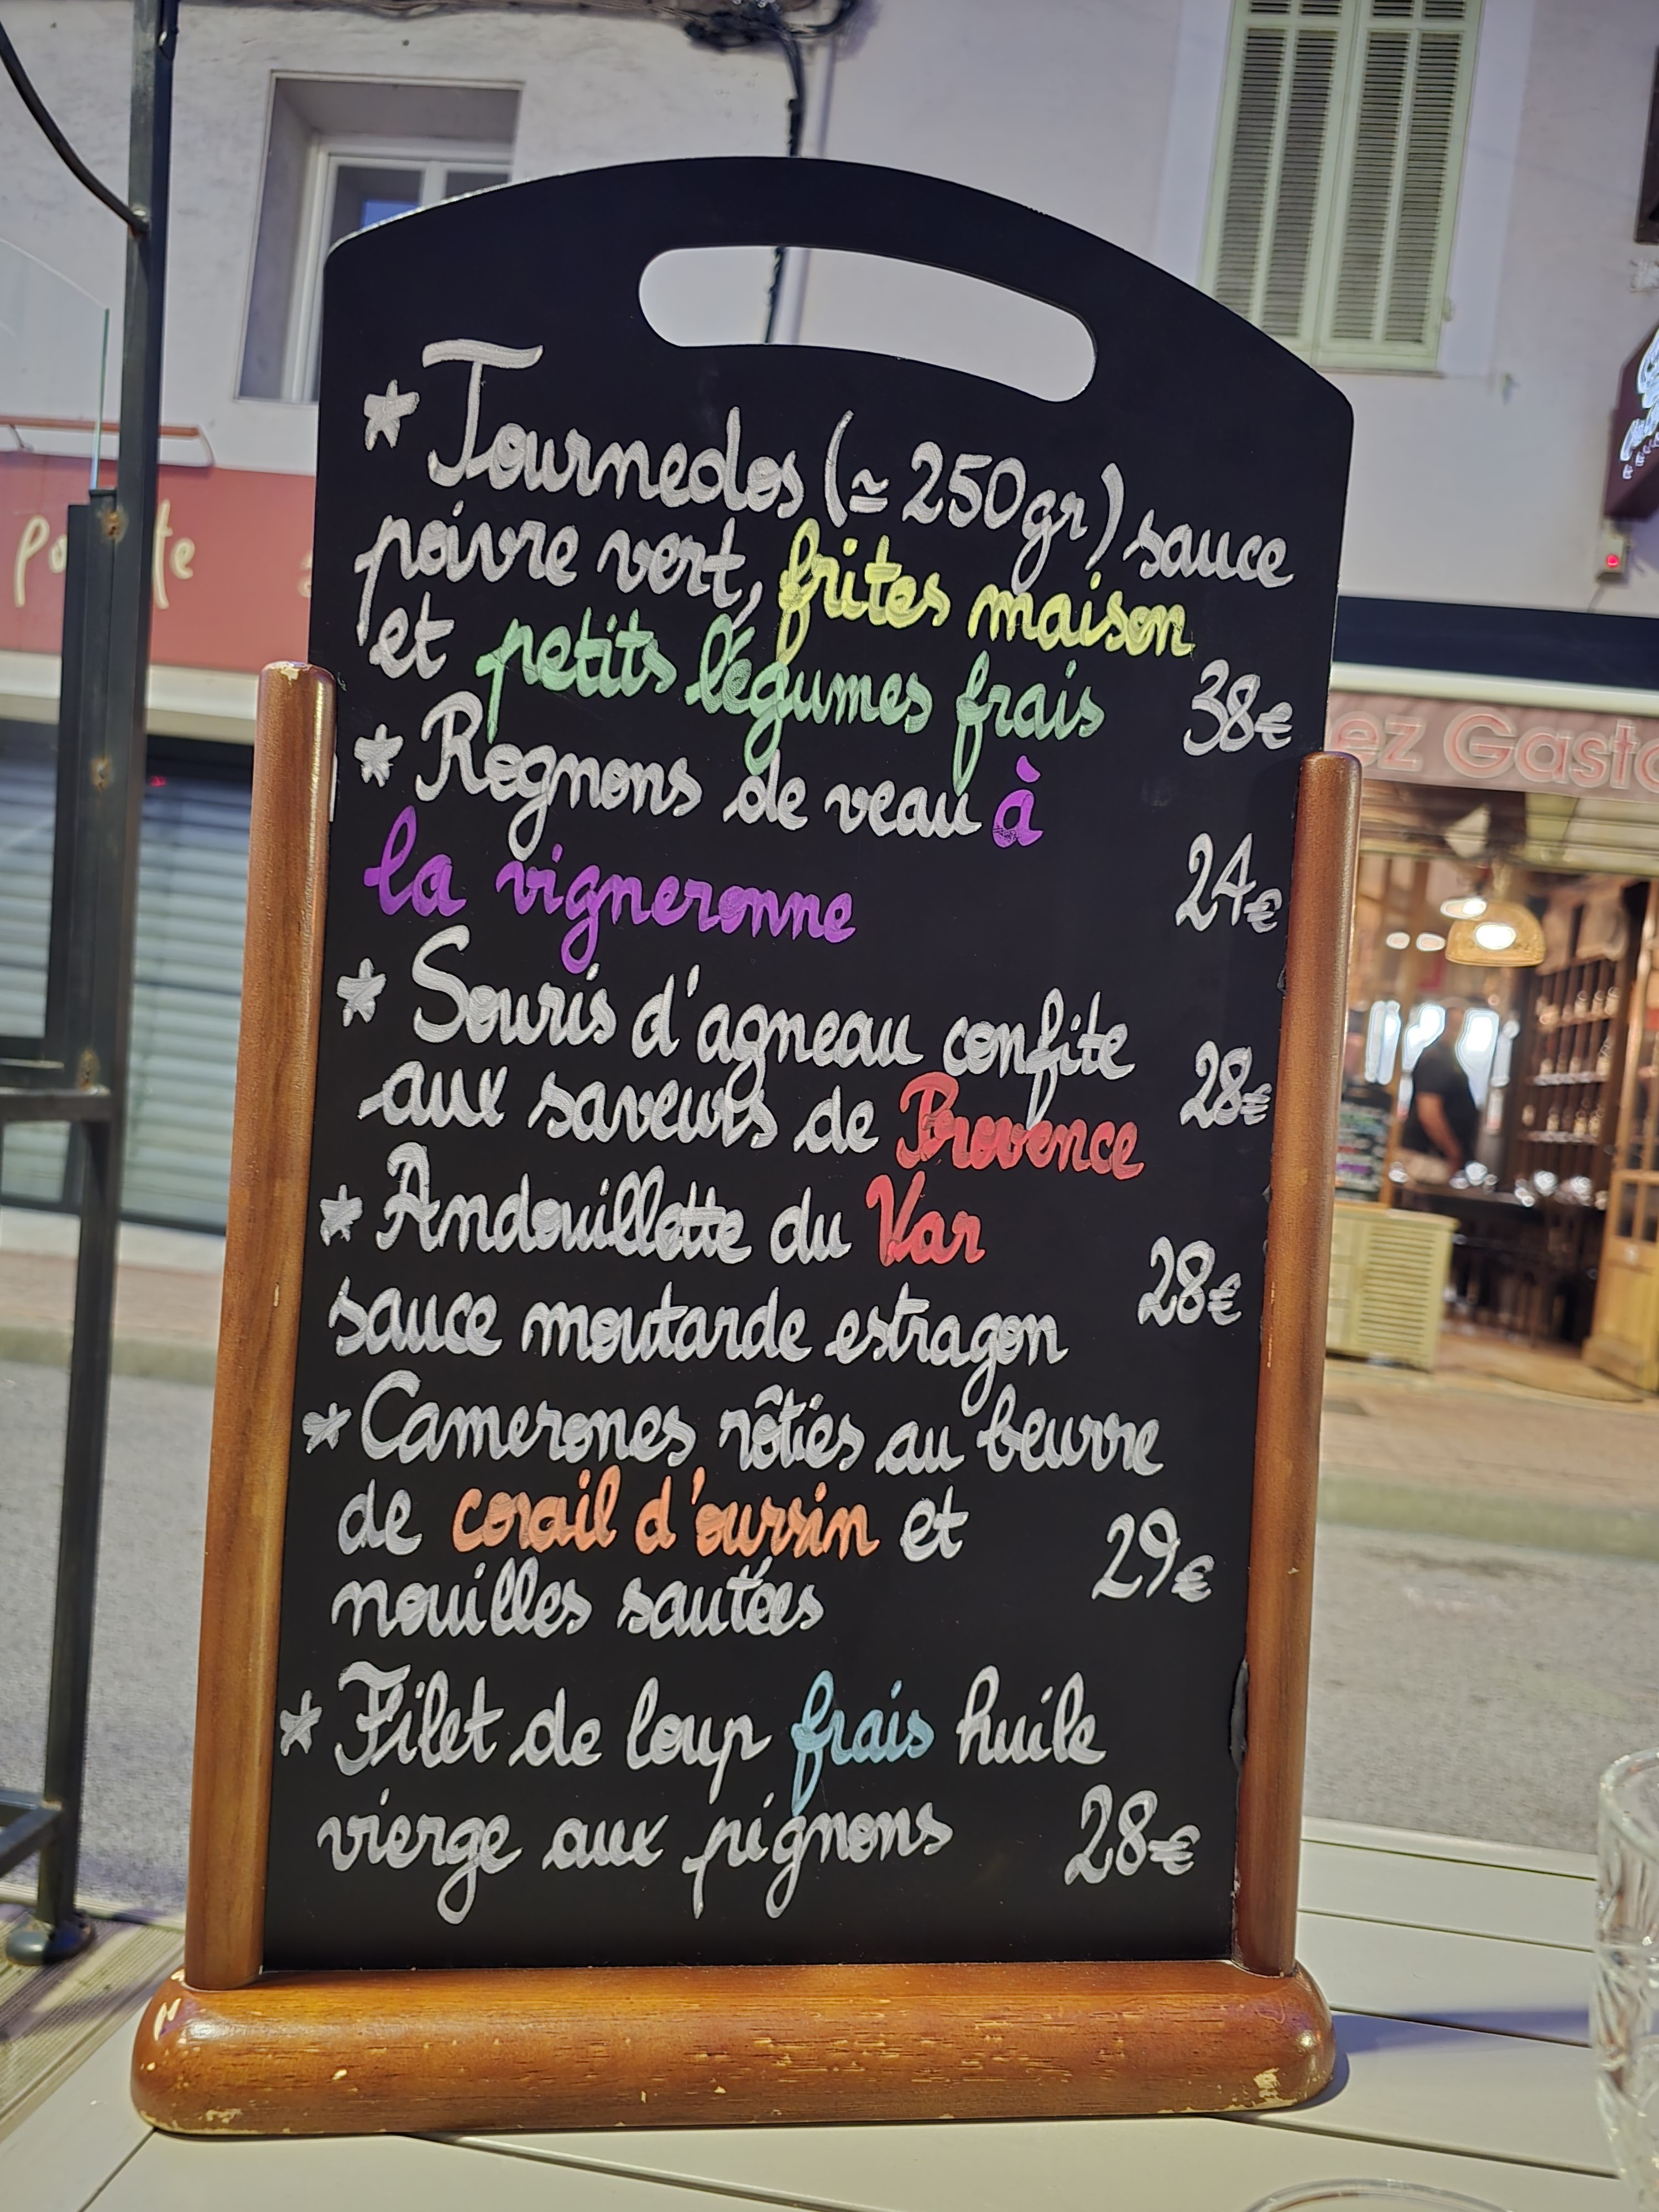 * Tournedos (≃ 250gr) sauce
poivre vert, frites maison
et petits légumes frais 38€
* Rognons de veau à
la vigneronne 24€
* Souris d'agneau confite
aux saveurs de Provence 28€
* Andouillette du Var
sauce moutarde estragon 28€
* Camerones rôties au beurre
de corail d'oursin et
nouilles sautées 29€
* Filet de loup frais huile
vierge aux pignons 28€
ez Gasto